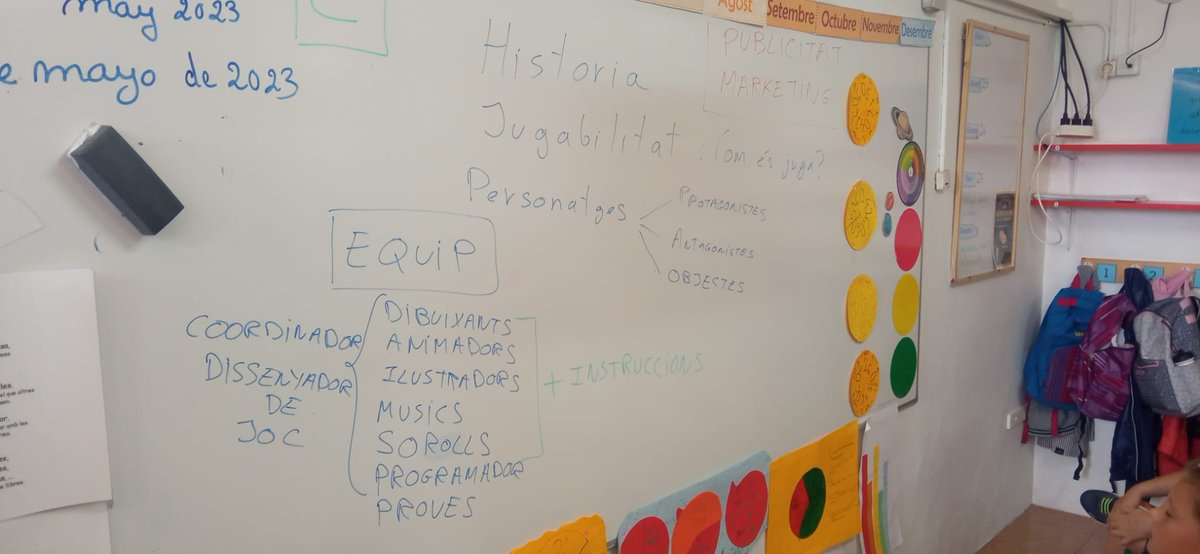 may 2023
e mayo de 2023
Agost
Setembre
Octubre
Novembre
Desembre
Historia
PUBLICITAT
MARKETING
Jugabilitat : Com és juga?
Personatges
PROTAGONISTES
ANTAGONISTES
OBJESTES
EQUIP
COORDINADOR
DISSENYADOR
DE
JOC
DIBUIXANTS
ANIMADORS
ILUSTRADORS
MUSICS
SOROLLS
PROGRAMADOR
PROVES
+ INSTRUCCIONS
1
2